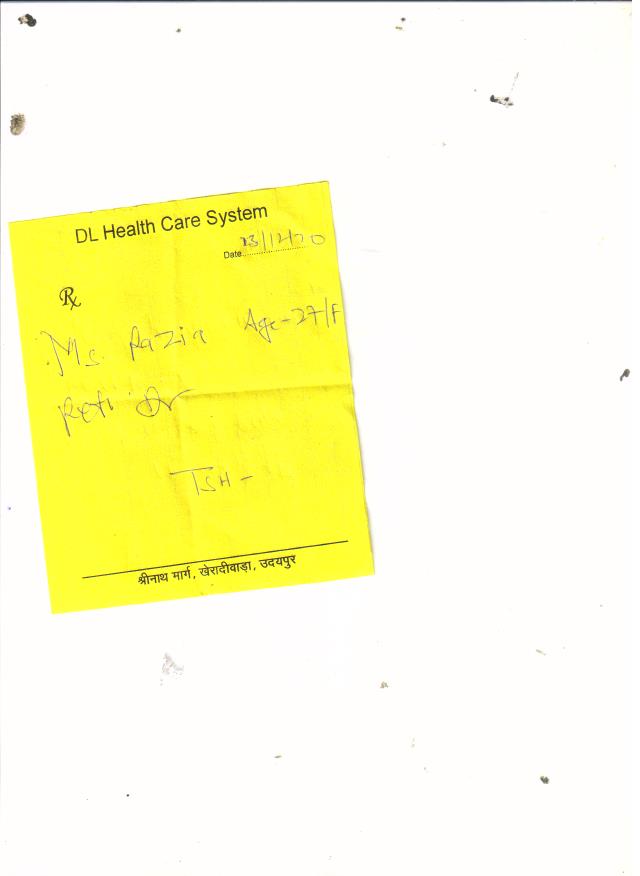 DL Health Care System
Date 23/12/20
Rx
Ms. Razia Age-27/F
Ref: Dr
TSH -
श्रीनाथ मार्ग, खेरादीवाड़ा, उदयपुर